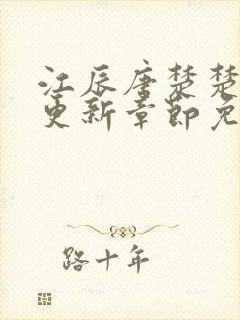 江辰唐楚楚
更新章节免
路十年